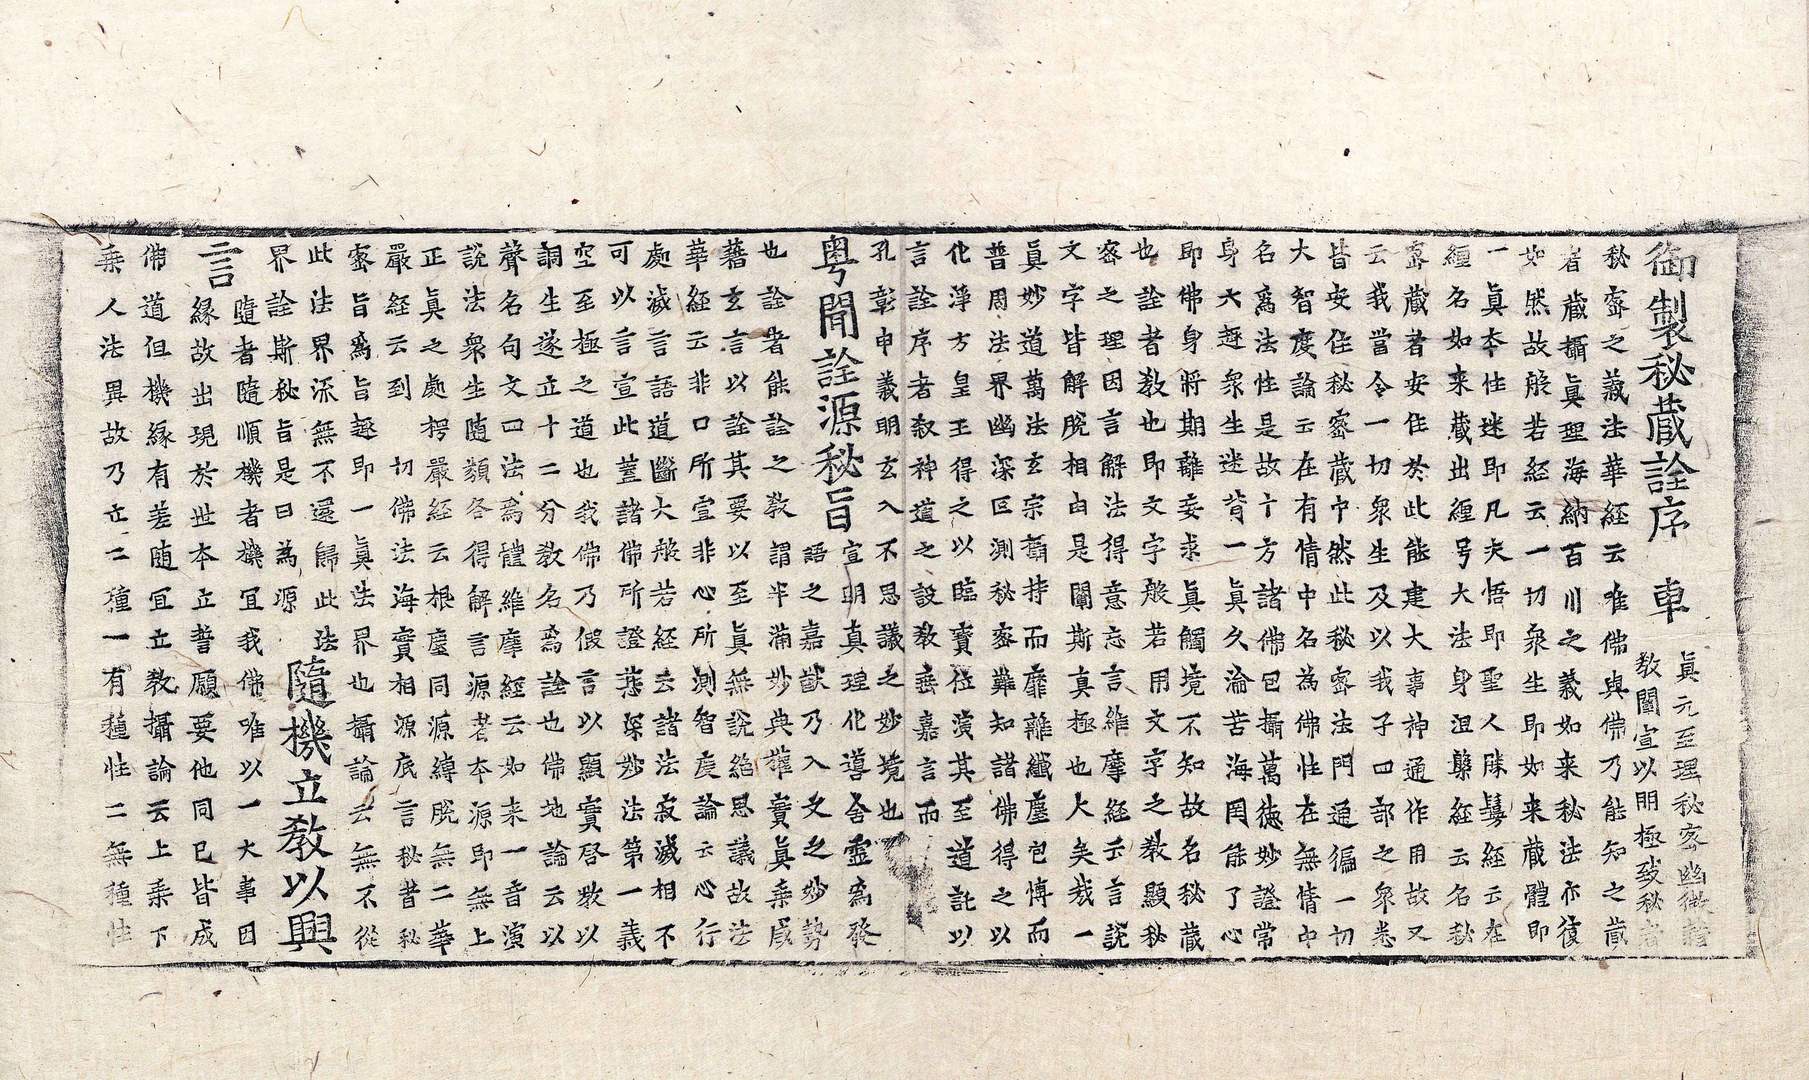 御製秘蔵詮序 車
眞元至理秘密幽微
教闡宣以明極致秘者
秘密之義法華經云唯佛與佛乃能知之蔵
者蔵攝眞理海納百川之義如来秘法亦復
如然故般若經云一切衆生即如来蔵體即
一眞本性迷即凡夫悟即聖人勝鬘經云在
纏名如来蔵出纏号大法身涅槃經云名秘
密蔵者安住於此能建大事神通作用故又
云我當令一切衆生及以我子四部之衆悉
皆安住秘密蔵中然此秘密法門通徧一切
大智度論云在有情中名為佛性在無情中
名為法性是故十方諸佛包攝萬德妙證常
身六趣衆生迷背一眞久淪苦海罔能了心
即佛身將期離妄求眞觸境不知故名秘蔵
也詮者教也即文字般若用文字之教顯秘
密之理因言解法得意忘言維摩經云言説
文字皆解脱相由是闡斯真極也大矣哉一
眞妙道萬法玄宗攝持而靡離纖塵包博而
普周法界幽深叵測秘密難知諸佛得之以
化淨方皇王得之以臨寶位演其至道託以
言詮序者叙神道之設教垂嘉言而
孔彰申義明玄入不思議之妙境也
粤聞詮源秘旨
宣明真理化導含靈為發
語之嘉猷乃入文之妙勢
也詮者能詮之教謂半滿妙典權實眞乗咸
藉玄言以詮其要以至眞無説絶思議故法
華經云非口所宣非心所測智度論云心行
處滅言語道斷大般若經云諸法寂滅相不
可以言宣此蓋諸佛所證甚深妙法第一義
空至極之道也我佛乃假言以顯實啓教以
詞生遂立十二分教名為詮也佛地論云以
聲名句文四法為體維摩經云如来一音演
説法衆生随類各得解言源者本源即無上
正眞之處楞嚴經云根塵同源縛脱無二華
嚴經云到 切佛法海實相源底言秘者秘
密旨為旨趣即一眞法界也攝論云無不從
此法界流無不還歸此法
界詮斯秘旨是曰為源
隨機立教以興
言
隨者隨順機者機宜我佛唯以一大事因
縁故出現於世本立誓願要他同已皆成
佛道但機縁有差随宜立教攝論云上乗下
乗人法異故乃立二種一有種性二無種性